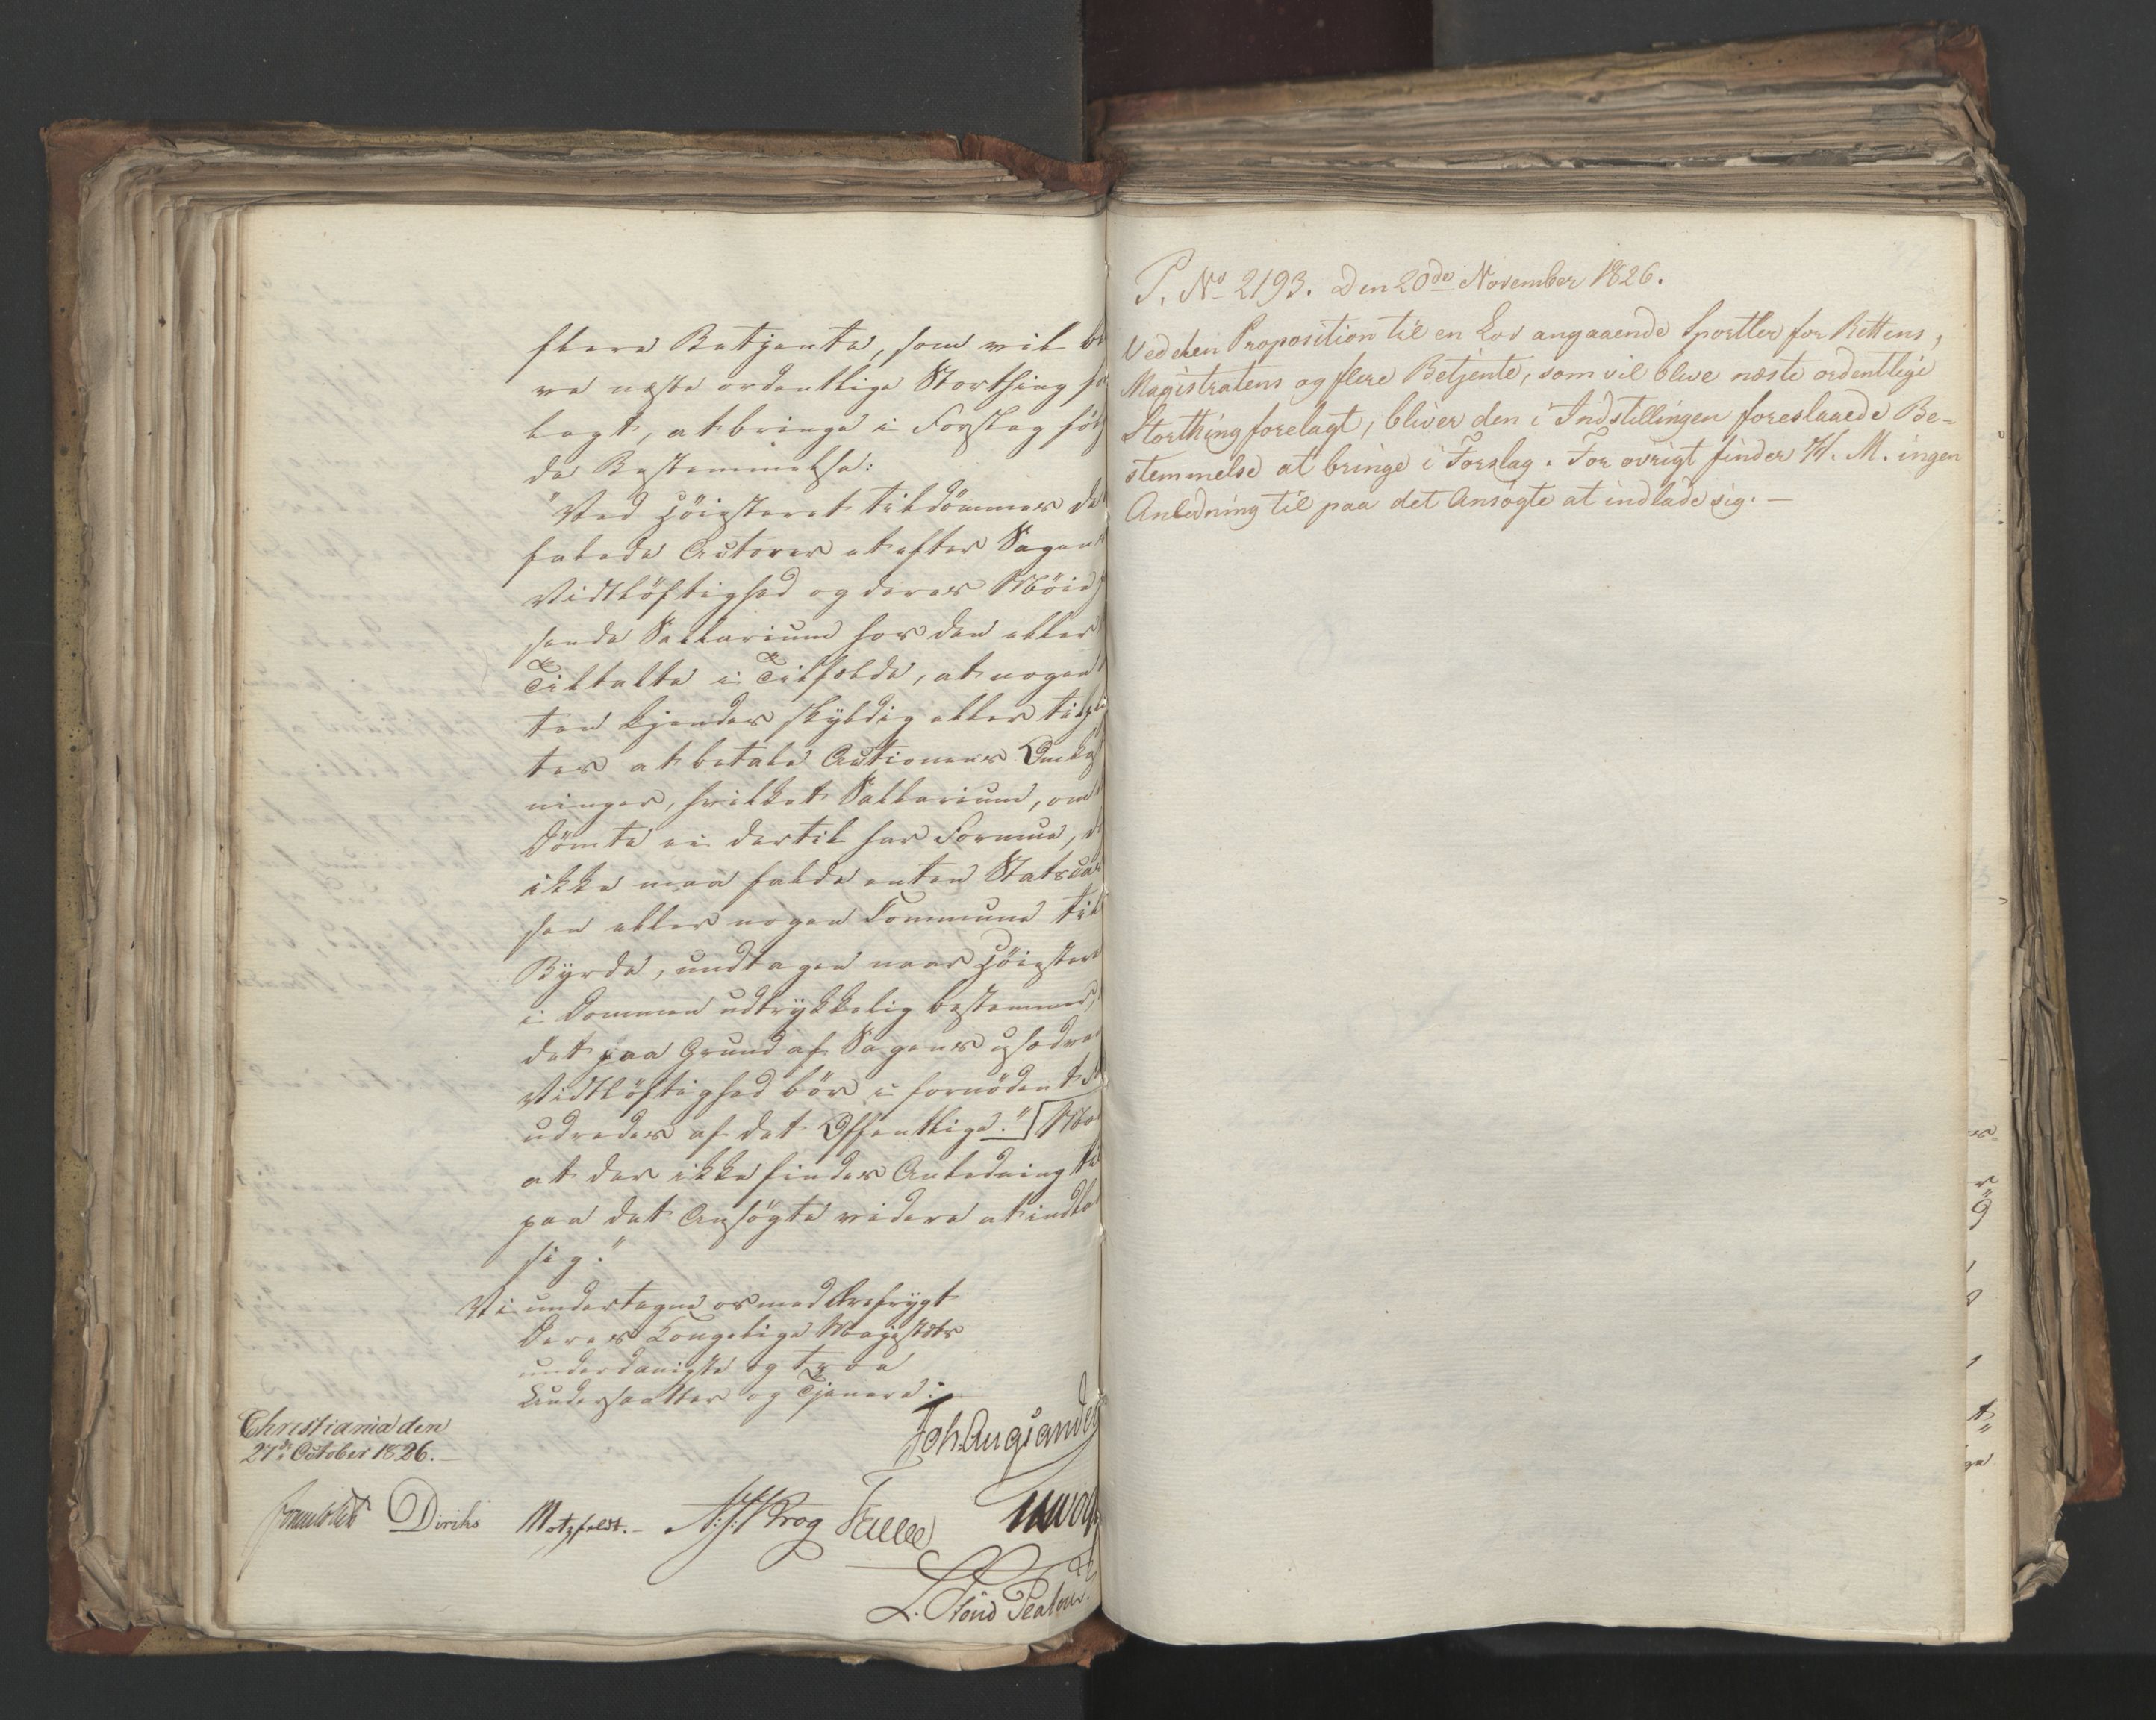 flere Betjente, som vil bli
ve næste ordentlige Storthing fo
lagt, at bringe i Forslag føl
de Bestemmelse:
"Ved Höiesteret tildömmes de
falede Actorer at efter Sagens
Vidtlöftighed og deres Möie
sende Sallarium hos den eller
Tiltalte i Tilfælde, at nogen
ten kjendes skyldig eller tilpli
tes at betale Actionens Omkost
ninger, hvilket Sallarium, om
Dömte ei dertil har Formue, 
ikke maa falde enten Statscas
sen eller nogen Commune til
Byrde, undtagen naar Höieste
i Dommen udtrykkelig bestemmes,
det paa Grund af Sagens 
Vidtlöftighed bör i fornödent
udredes af det Offentlige."
at der ikke findes Anledning til
paa det Ansögte videre at indla
sig."
Vi undertegne os med Ærefrygt
Deres Kongelige Majestæts
underdanigste og troe
Undersaatter og Tjenere:
Christiania den
27de October 1826.
Joh. Aug. Sande
Diriks Motzfeldt. N: J: Krog
P. No 2193. Den 20de November 1826.
Ved den Proposition til en Lov angaaende Sportler for Rettens,
Magistratens og flere Betjente, som vil blive næste ordentlige
Storthing forelagt, bliver den i Indstillingen foreslaaede Be-
stemmelse at bringe i Forslag. For øvrigt finder H. M. ingen
Anledning til paa det Ansøgte at indlade sig. —